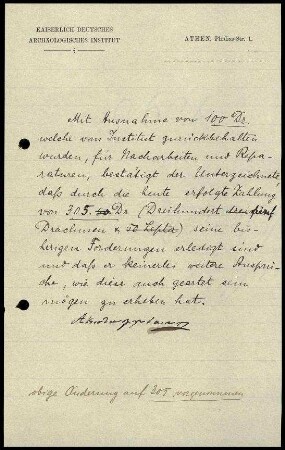 KAISERLICH DEUTSCHES
ARCHÄOLOGISCHES INSTITUT
ATHEN, Phidias-Str. 1.
Mit Ausnahme von 100 Dr.
welche vom Institut zurückbehalten
wurden, für Nacharbeiten und Repa-
raturen, bestätigt der Unterzeichnete,
daß durch die heute erfolgte Zahlung
von 305 Dr (Dreihundert fünf
Drachmen & 50 Lepta) seine bis-
herigen Forderungen erledigt sind
und daß er keinerlei weitere Ansprü-
che, wie diese auch geartet sein
mögen zu erheben hat.
obige Änderung auf 305 vorgenommen